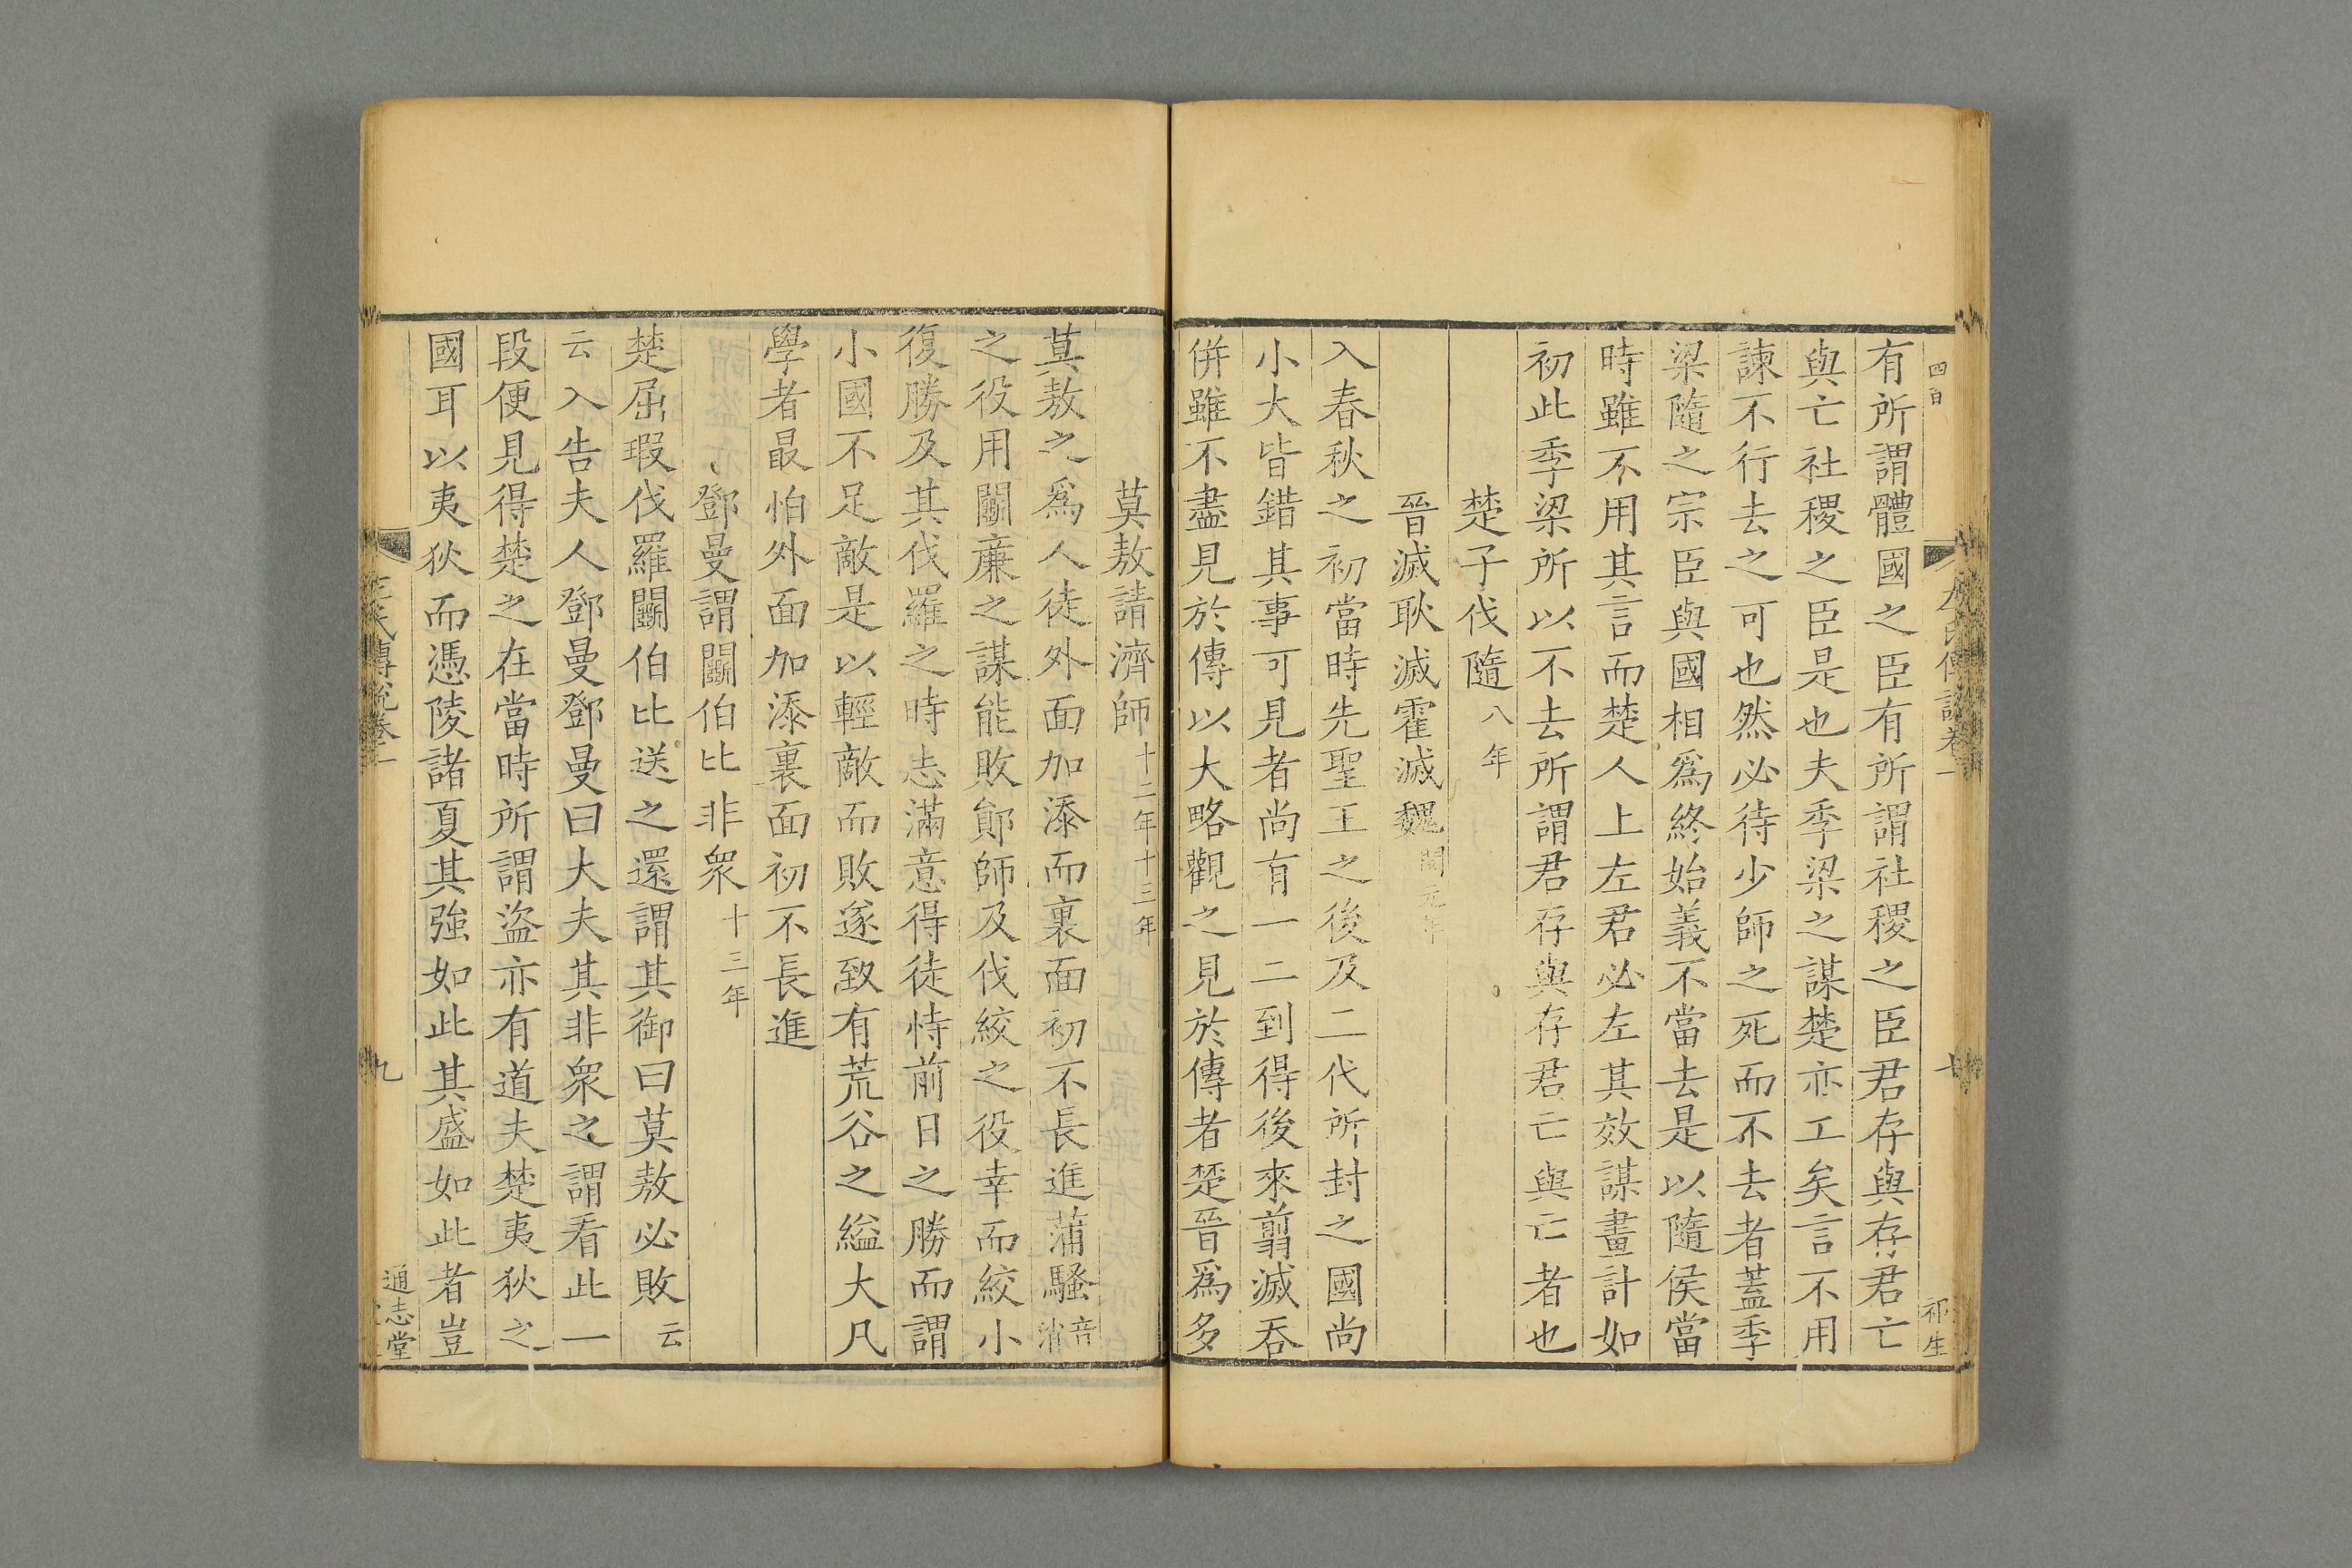 四百
祁生
有所謂體國之臣有所謂社稷之臣君存與存君亡
與亡社稷之臣是也夫季梁之謀楚亦工矣言不用
諫不行去之可也然必待少師之死而不去者蓋季
梁隨之宗臣與國相爲終始義不當去是以隨侯當
時雖不用其言而楚人上左君必左其效謀畫計如
初此季梁所以不去所謂君存與存君亡與亡者也
楚子伐隨八年
晉滅耿滅霍滅魏閔元年
入春秋之初當時先聖王之後及二代所封之國尚
小大皆錯其事可見者尚有一二到得後來翦滅吞
併雖不盡見於傳以大略觀之見於傳者楚晉爲多
莫敖請濟師十二年十三年
莫敖之爲人徒外面加添而裏面初不長進蒲騷音消
之役用鬭廉之謀能敗鄖師及伐絞之役幸而絞小
復勝及其伐羅之時志滿意得徒恃前日之勝而謂
小國不足敵是以輕敵而敗遂致有荒谷之縊大凡
學者最怕外面加添裏面初不長進
鄧曼謂鬭伯比非衆十三年
楚屈瑕伐羅鬭伯比送之還謂其御曰莫敖必敗云
云入告夫人鄧曼鄧曼曰大夫其非衆之謂看此一
段便見得楚之在當時所謂盜亦有道夫楚夷狄之
國耳以夷狄而憑陵諸夏其強如此其盛如此者豈
左氏傳說卷一
九
通志堂